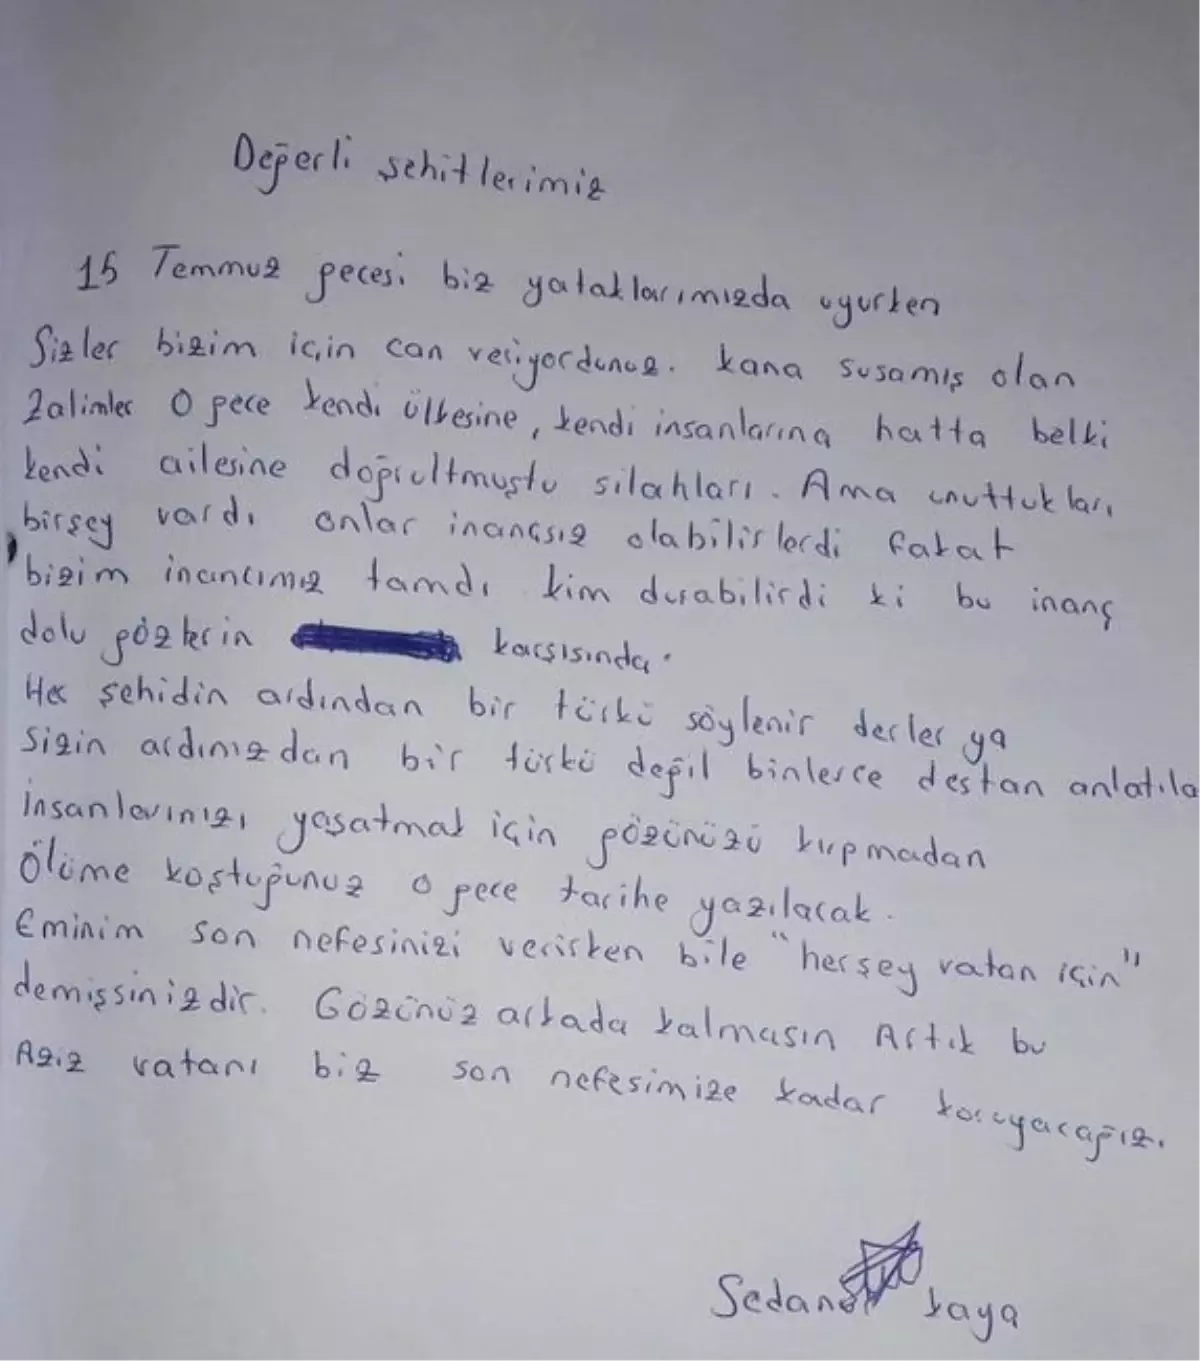 Değerli şehitlerimiz
15 Temmuz gecesi biz yataklarımızda uyurken
Sizler bizim için can veriyordunuz. kana susamış olan
Zalimler O gece kendi ülkesine, kendi insanlarına hatta belki
kendi ailesine doğrultmuştu silahları. Ama unuttukları
birşey vardı onlar inançsız olabilirlerdi fakat
bizim inancımız tamdı kim durabilirdi ki bu inanç
dolu gözlerin karşısında.
Her şehidin ardından bir türkü söylenir derler ya
Sizin ardınızdan bir türkü değil binlerce destan anlatıla
insanlarınızı yaşatmak için gözünüzü kırpmadan
Ölüme koştuğunuz o gece tarihe yazılacak.
Eminim son nefesinizi verirken bile "herşey vatan için"
demişsinizdir. Gözünüz arkada kalmasın Artık bu
Aziz vatanı biz son nefesimize kadar koruyacağız.
kaya